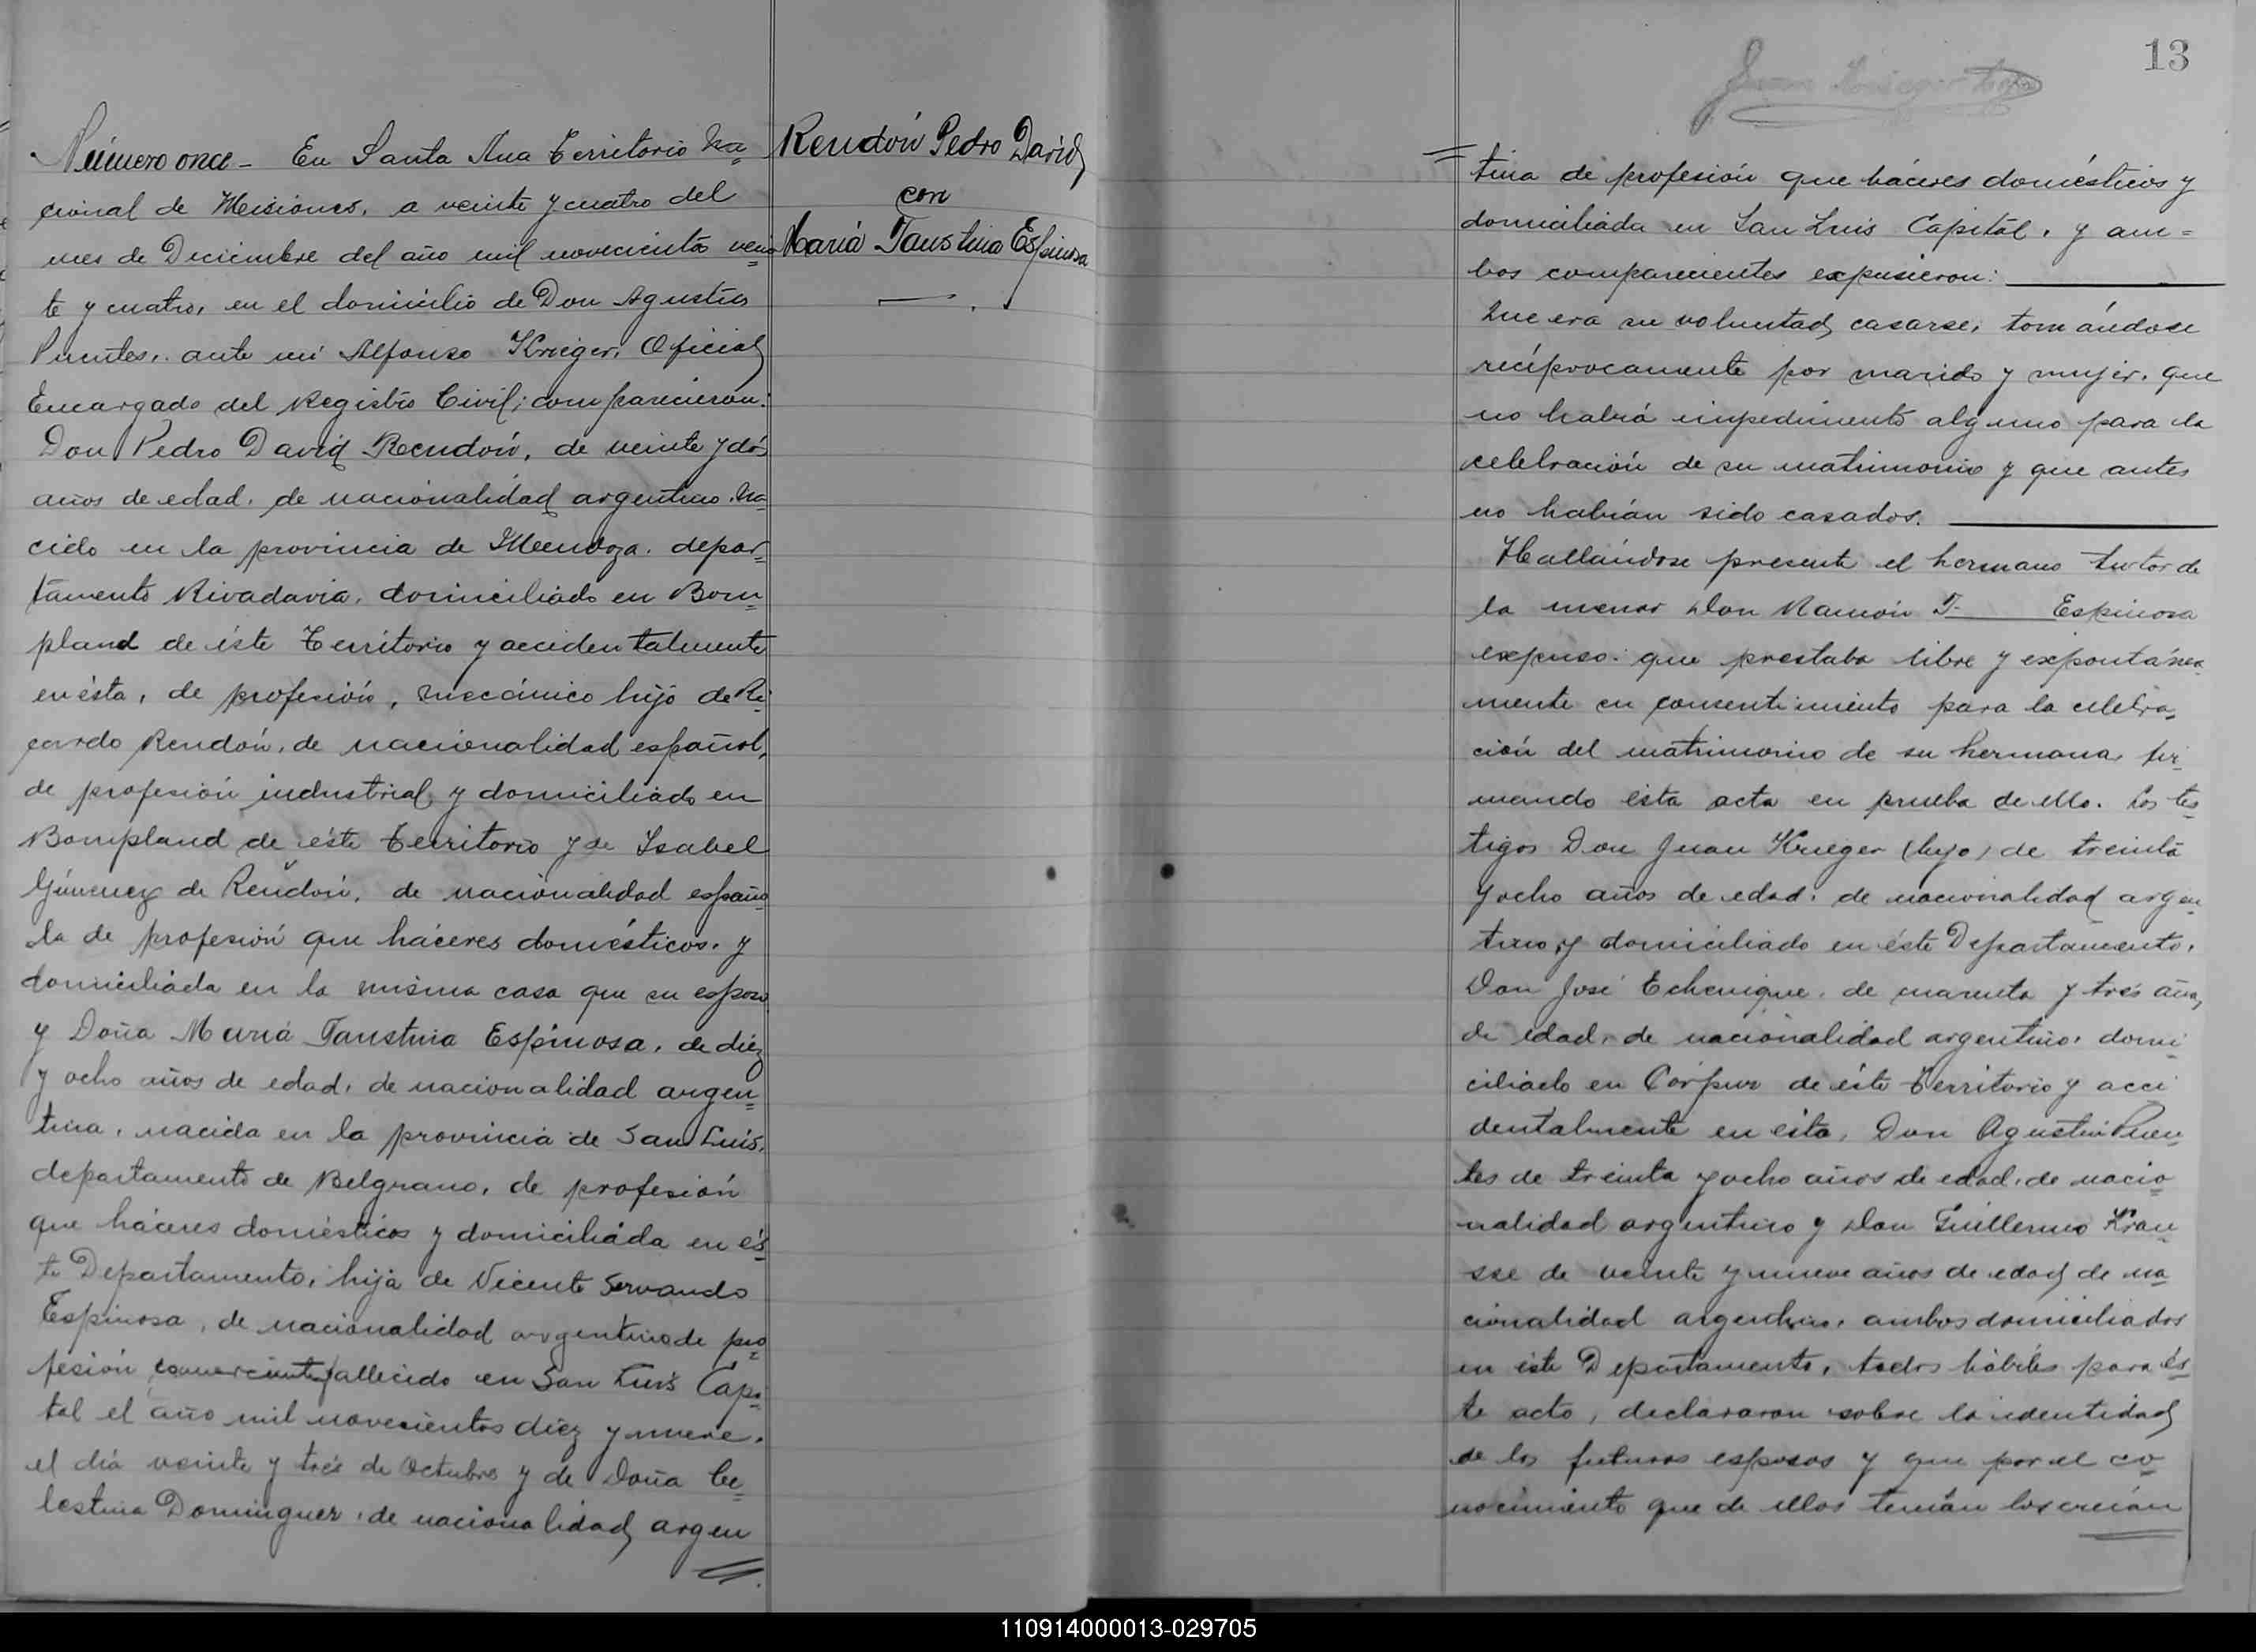 Número once - En Santa Ana Territorio Na=
cional de Misiones, a veinte y cuatro del
mes de Diciembre del año mil novecientos vein=
te y cuatro, en el domicilio de Don Agustín
Puentes, ante mí Alfonso Krieger, Oficial
Encargado del Registro Civil; comparecieron:
Don Pedro David Rendón, de veinte y dós
años de edad, de nacionalidad argentino, na=
cido en la provincia de Mendoza, depar=
tamento Rivadavia, domiciliado en Bom=
pland de éste Territorio y accidentalmente
en ésta, de profesión, mecánico hijo de Ri=
cardo Rendón, de nacionalidad español,
de profesión industrial y domiciliado en
Bompland de éste Territorio y de Isabel
Gimenez de Rendón, de nacionalidad españo=
la de profesión que háceres domésticos, y
domiciliada en la misma casa que su esposo
y Doña María Faustina Espinosa, de diéz
y ocho años de edad, de nacionalidad argen=
tina, nacida en la provincia de San Luis,
departamento de Belgrano, de profesión
que háceres domésticos y domiciliada en és=
te Departamento, hija de Vicente Servando
Espinosa, de nacionalidad argentino de pro=
fesión comerciante fallecido en San Luis Capi=
tal el año mil novecientos diéz y nueve,
el día veinte y trés de Octubre y de Doña Ce=
lestina Dominguez, de nacionalidad argen=
Rendón Pedro David
con
María Faustina Espinosa
13
=tina de profesión que háceres domésticos y
domiciliada en San Luis Capital, y am=
bos comparecientes expusieron:
Que era su voluntad casarse, tomándose
recíprocamente por marido y mujer, que
no había impedimento alguno para la
celebración de su matrimonio y que antes
no habían sido casados.
Hallándose presente el hermano tutor de
la menor Don Ramón T. Espinosa
expuso: que prestaba libre y expontánea
mente su consentimiento para la celebra=
ción del matrimonio de su hermana, fir=
mando ésta acta en prueba de ello. Los tes=
tigos Don Juan Krieger (hijo) de treinta
y ocho años de edad, de nacionalidad argen=
tino y domiciliado en éste Departamento,
Don José Echenique, de cuarenta y trés años
de edad, de nacionalidad argentino, domi=
ciliado en Córpus de éste Territorio y acci
dentalmente en ésta, Don Agustín Puen=
tes de treinta y ocho años de edad, de nacio=
nalidad argentino y Don Guillermo Krau=
sse de veinte y nueve años de edad de na=
cionalidad argentino, ambos domiciliados
en éste Departamento, todos hábiles para és=
te acto, declararon sobre la identidad
de los futuros esposos y que por el co=
nocimiento que de ellos tenían los creían
110914000013-029705